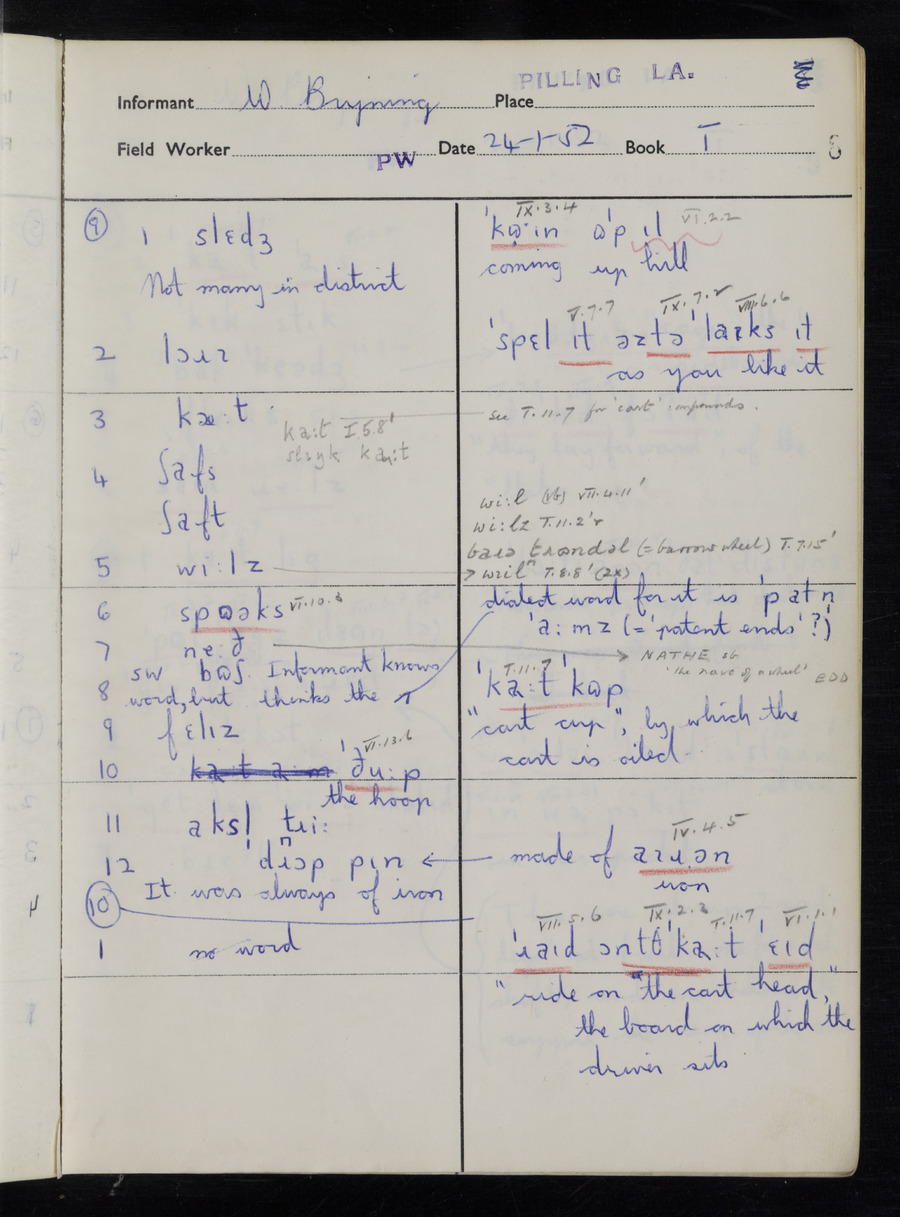 PILLING LA.
Informant W. Bryning Place
Field Worker PW Date 24-1-52 Book I 5
9
1 slɛdʒ
Not many in district
2
3
4 ʃafs
ʃaft
5 wi:lz
6 spɷəks VI.10.3
7
8 SW bɷʃ. Informant knows
word, but thinks the
9 fɛlɪz
10 'ðu:p VI.13.6
the hoop
11 aksl tɹi:
12
It was always of iron
10
1 no word
ka:t I.5.8'
IX.3.4
VI.2.2
coming up hill
V.7.7 IX.7.2 VIII.6.6
as you like it
see T.11.7 for 'cart' compounds.
wi:l (vb) VII.4.11'
wi:lz T.11.2'r
(= barrow wheel) T.7.15'
T.8.8' (2x)
dialect word for it is 'patn
'a:mz (= 'patent ends'?)
NATHE sb
'the nave of a wheel' EDD
T.11.7
'ka:t 'kɷp
"cart cup", by which the
cart is oiled.
IV.4.5
made of aɪɹən
iron
VII.5.6 IX.2.3 T.11.7 VI.1.1
"ride on "the cart head,"
the board on which the
driver sits
4